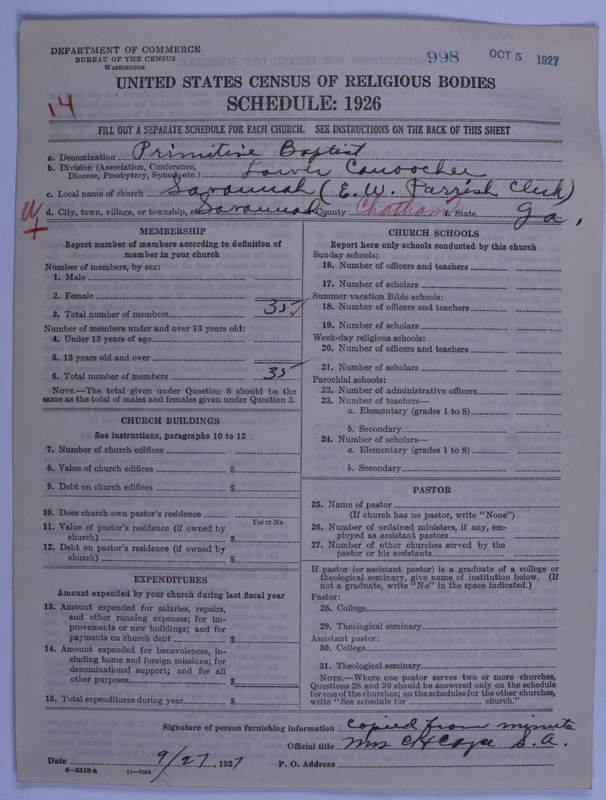 DEPARTMENT OF COMMERCE
BUREAU OF THE CENSUS
WASHINGTON
998 OCT 5 1927
UNITED STATES CENSUS OF RELIGIOUS BODIES
SCHEDULE: 1926
14
FILL OUT A SEPARATE SCHEDULE FOR EACH CHURCH. SEE INSTRUCTIONS ON THE BACK OF THIS SHEET
a. Denomination Primitive Baptist
b. Division (Association, Conference, Diocese, Presbytery, Synod, etc.) Lower Canoochee
c. Local name of church Savannah (E. W. Parrish Clerk)
d. City, town, village, or township, etc. Savannah County Chatham State Ga.
MEMBERSHIP
Report number of members according to definition of member in your church
Number of members, by sex:
1. Male
2. Female
3. Total number of members 35
Number of members under and over 13 years old:
4. Under 13 years of age
5. 13 years old and over
6. Total number of members 35
NOTE.—The total given under Question 6 should be the same as the total of males and females given under Question 3.
CHURCH BUILDINGS
See instructions, paragraphs 10 to 12
7. Number of church edifices
8. Value of church edifices $
9. Debt on church edifices $
10. Does church own pastor's residence
Yes or No
11. Value of pastor's residence (if owned by church) $
12. Debt on pastor's residence (if owned by church) $
EXPENDITURES
Amount expended by your church during last fiscal year
13. Amount expended for salaries, repairs, and other running expenses; for improvements or new buildings; and for payments on church debt $
14. Amount expended for benevolences, including home and foreign missions; for denominational support; and for all other purposes $
15. Total expenditures during year $
CHURCH SCHOOLS
Report here only schools conducted by this church
Sunday schools:
16. Number of officers and teachers
17. Number of scholars
Summer vacation Bible schools:
18. Number of officers and teachers
19. Number of scholars
Week-day religious schools:
20. Number of officers and teachers
21. Number of scholars
Parochial schools:
22. Number of administrative officers
23. Number of teachers—
a. Elementary (grades 1 to 8)
b. Secondary
24. Number of scholars—
a. Elementary (grades 1 to 8)
b. Secondary
PASTOR
25. Name of pastor
(If church has no pastor, write "None")
26. Number of ordained ministers, if any, employed as assistant pastors
27. Number of other churches served by the pastor or his assistants
If pastor (or assistant pastor) is a graduate of a college or theological seminary, give name of institution below. (If not a graduate, write "No" in the space indicated.)
Pastor:
28. College
29. Theological seminary
Assistant pastor:
30. College
31. Theological seminary
NOTE.—Where one pastor serves two or more churches, Questions 28 and 29 should be answered only on the schedule for one of the churches; on the schedules for the other churches, write "See schedule for church."
Signature of person furnishing information copied from minute
Official title Mrs C H S. A.
Date 9/27, 1927 P. O. Address
8-5518a 11-9054